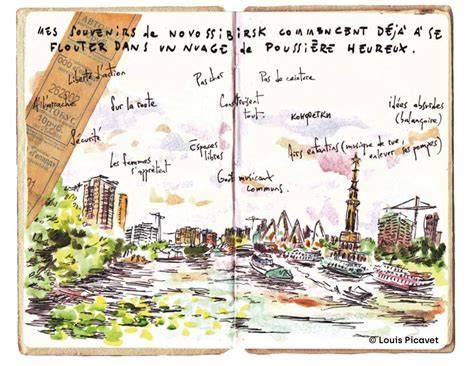 MES SOUVENIRS de NOVOSSIBIRSK COMMENCENT DÉJÀ À SE
FLOUTER DANS UN NUAGE de POUSSIÈRE HEUREUX.
Liberté d'action
Pas cher
Pas de ceinture
À l'arrache
Sur la route
Construisent
tout.
конфетки
idées absurdes
(balançoire)
Sécurité
Les femmes
s'apprêtent
Espaces
libres
Airs enfantins (musique de rue,
enlever ses pompes)
Goûts musicaux
communs.
АВТО
262002
10руб.
© Louis Picavet